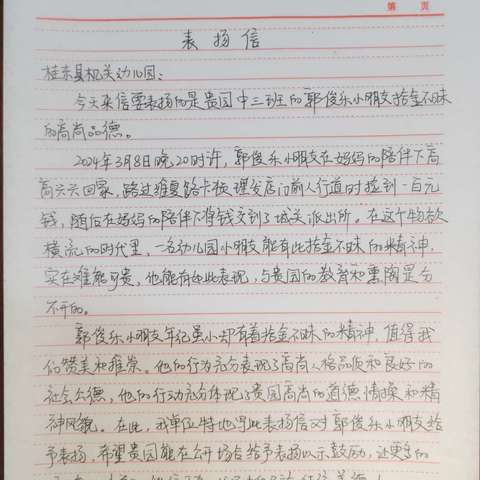 第 页
表扬信
桂东县机关幼儿园：
今天来信要表扬的是贵园中三班的郭俊乐小朋友拾金不昧
的高尚品德。
2024年3月8日晚20时许，郭俊乐小朋友在妈妈的陪伴下高
高兴兴回家，路过维夏路卡拉理发店门前人行道时捡到一百元
钱，随后在妈妈的陪伴下将钱交到了城关派出所。在这个物欲
横流的时代里，一名幼儿园小朋友能有此拾金不昧的精神，
实在难能可贵，他能有如此表现，与贵园的教育和熏陶是分
不开的。
郭俊乐小朋友年纪虽小却有着拾金不昧的精神，值得我
们赞美和推崇。他的行为充分表现了高尚人格品质和良好的
社会公德，他的行动充分体现了贵园高尚的道德情操和精
神风貌。在此，我单位特地写此表扬信对郭俊乐小朋友给
予表扬，希望贵园能在公开场合给予表扬以示鼓励，让更多的